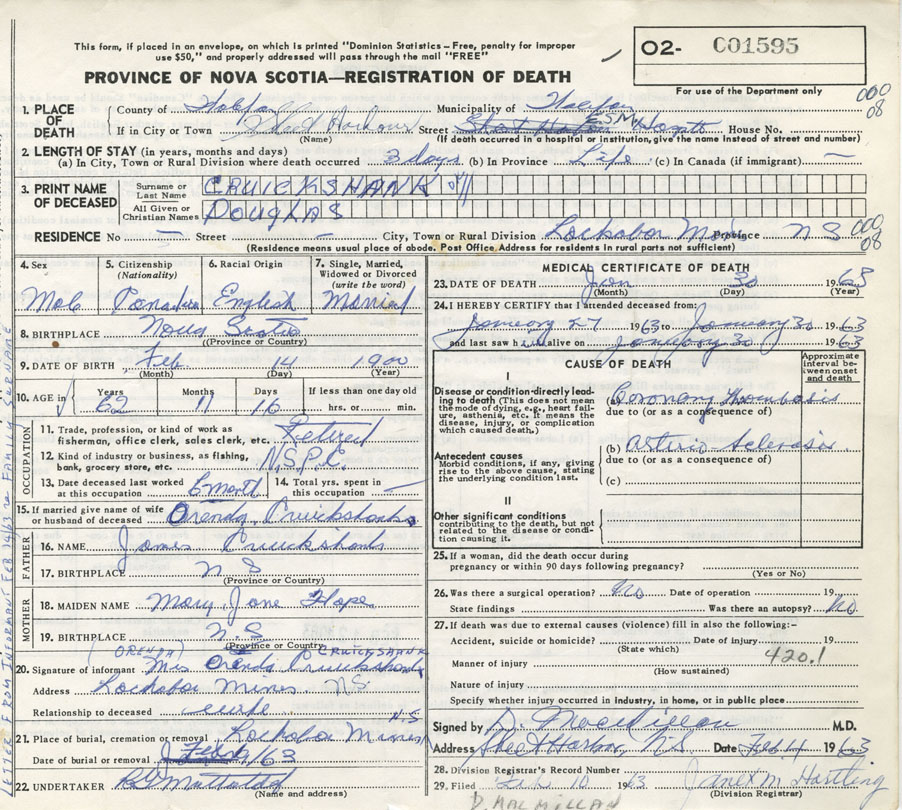 This form, if placed in an envelope, on which is printed "Dominion Statistics – Free, penalty for improper
use $50," and properly addressed will pass through the mail "FREE"
PROVINCE OF NOVA SCOTIA—REGISTRATION OF DEATH
O2- C01595
For use of the Department only
000
08
1. PLACE OF DEATH
County of Halifax Municipality of Halifax
If in City or Town Sheet Harbour Street ESM Hospt House No.
(Name) (If death occurred in a hospital or institution, give the name instead of street and number)
2. LENGTH OF STAY (in years, months and days)
(a) In City, Town or Rural Division where death occurred 3 days (b) In Province Life (c) In Canada (if immigrant) —
3. PRINT NAME OF DECEASED
Surname or Last Name CRUICKSHANK
All Given or Christian Names DOUGLAS
RESIDENCE No — Street — City, Town or Rural Division Lochabar Mines Province N S
000
08
(Residence means usual place of abode. Post Office Address for residents in rural parts not sufficient)
4. Sex 5. Citizenship (Nationality) 6. Racial Origin 7. Single, Married, Widowed or Divorced (write the word)
Male Canadian English Married
8. BIRTHPLACE Nova Scotia
(Province or Country)
9. DATE OF BIRTH Feb. 14 1900
(Month) (Day) (Year)
10. AGE in Years Months Days If less than one day old
62 11 16 hrs. or min.
OCCUPATION
11. Trade, profession, or kind of work as
fisherman, office clerk, sales clerk, etc. Retired
12. Kind of industry or business, as fishing,
bank, grocery store, etc. N.S.P.C.
13. Date deceased last worked
at this occupation 6 month
14. Total yrs. spent in
this occupation —
15. If married give name of wife
or husband of deceased Orenda Cruickshank
FATHER
16. NAME James Cruickshank
17. BIRTHPLACE N S
(Province or Country)
MOTHER
18. MAIDEN NAME Mary Jane Hope
19. BIRTHPLACE N.S
(Province or Country)
(ORENDA) CRUICKSHANK
20. Signature of informant Mrs Orenda Cruickshank
Address Lochabar Mines NS.
Relationship to deceased wife
N.S
21. Place of burial, cremation or removal Lochabar Mines
Date of burial or removal Feb 1/63
22. UNDERTAKER
(Name and address)
LETTER FROM INFORMANT FEB 14/63 re FAMILY SURNAME
MEDICAL CERTIFICATE OF DEATH
23. DATE OF DEATH Jan 30 1963
(Month) (Day) (Year)
24. I HEREBY CERTIFY that I attended deceased from:
January 27 1963 to January 30 1963
and last saw him alive on January 30 1963
CAUSE OF DEATH
Approximate interval between onset and death
I
Disease or condition directly leading to death (This does not mean the mode of dying, e.g., heart failure, asthenia, etc. It means the disease, injury, or complication which caused death.)
(a) Coronary Thrombosis
due to (or as a consequence of)
Antecedent causes
Morbid conditions, if any, giving rise to the above cause, stating the underlying condition last.
(b) Arterio Sclerosis
due to (or as a consequence of)
(c)
II
Other significant conditions
contributing to the death, but not related to the disease or condition causing it.
25. If a woman, did the death occur during
pregnancy or within 90 days following pregnancy?
(Yes or No)
26. Was there a surgical operation? No Date of operation 19
State findings Was there an autopsy? No
27. If death was due to external causes (violence) fill in also the following:–
Accident, suicide or homicide? Date of injury 19
(State which)
420.1
Manner of injury
(How sustained)
Nature of injury
Specify whether injury occurred in Industry, in home, or in public place
Signed by D. MacMillan M.D.
Address Sheet Harbor, N.S Date Feb 4 1963
28. Division Registrar's Record Number
29. Filed Feb 10 1963 Janet M Hartling
(Division Registrar)
D. MACMILLAN